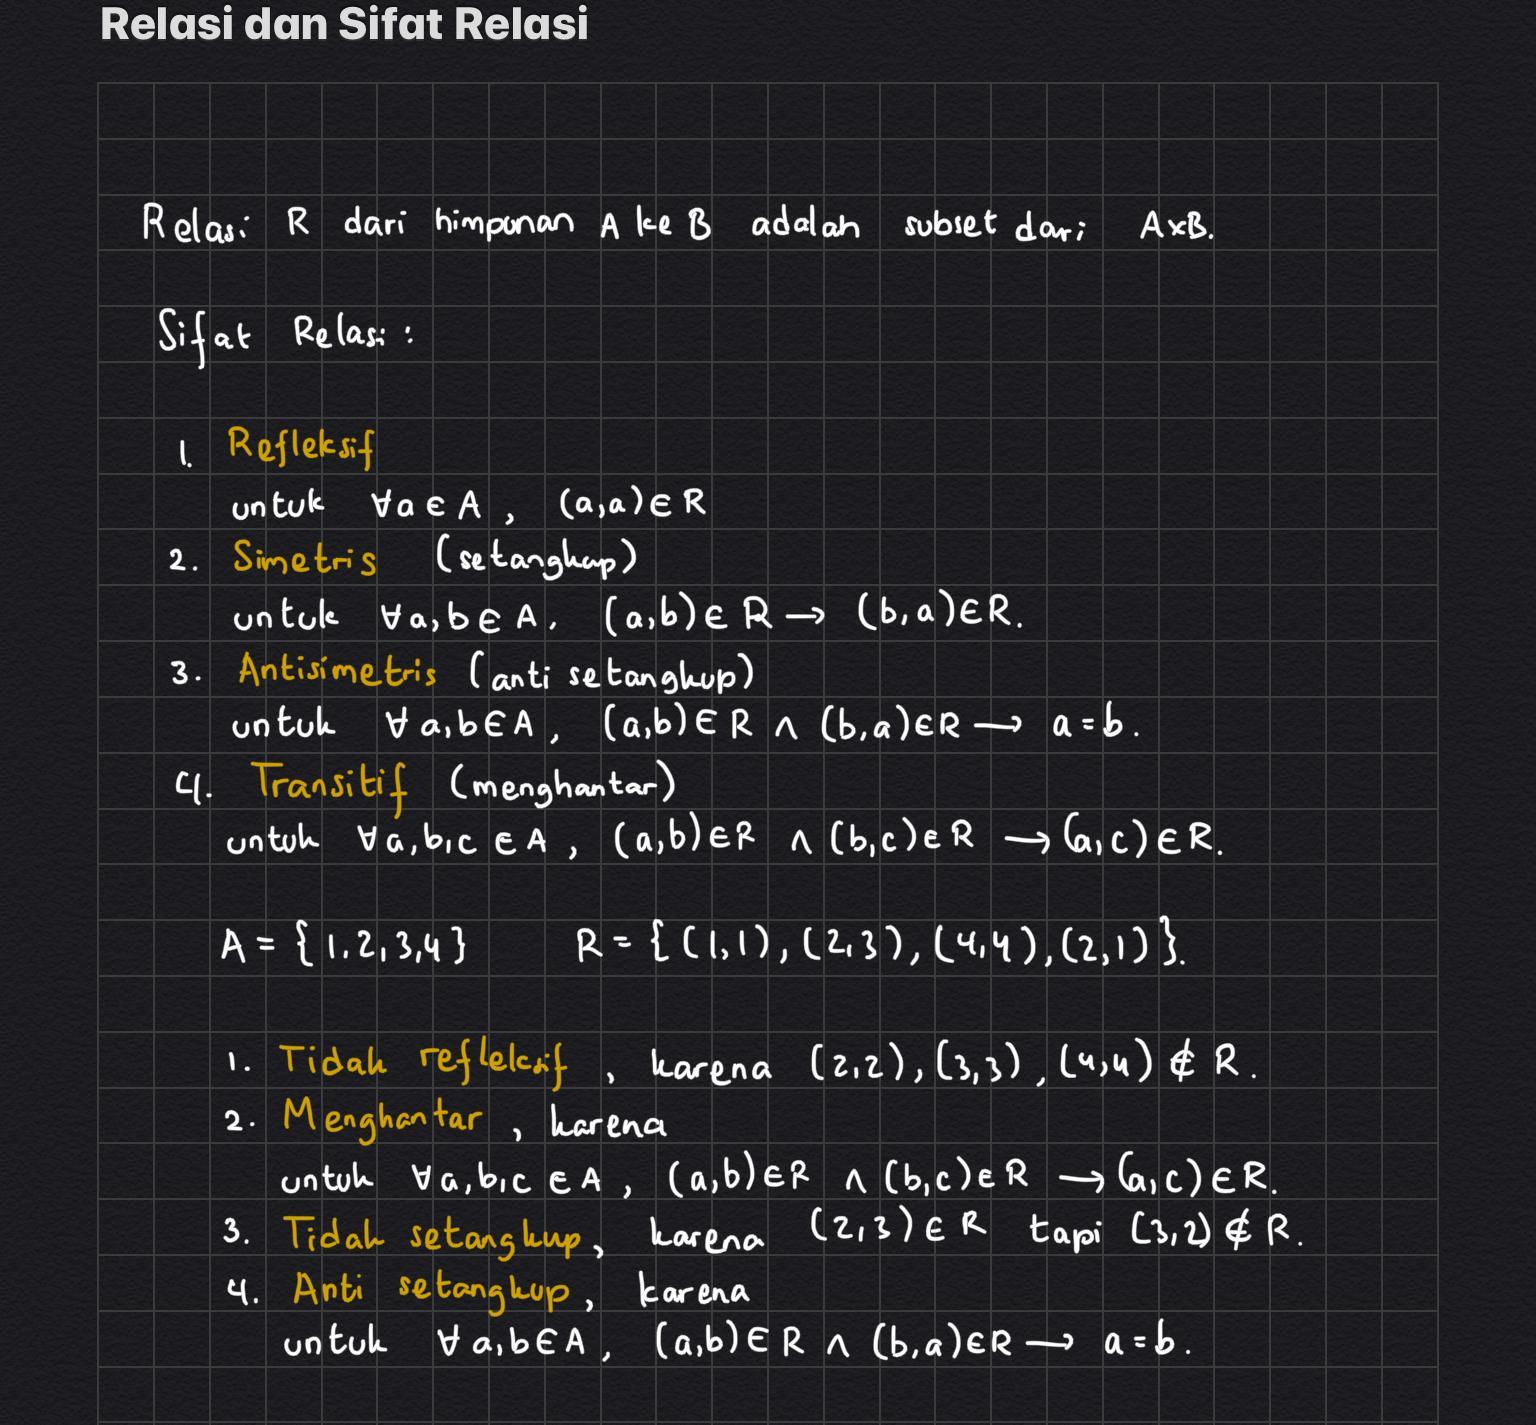 Relasi dan Sifat Relasi
Relasi R dari himpunan A ke B adalah subset dari A×B.
Sifat Relasi :
1. Refleksif
untuk ∀a ∈ A , (a,a) ∈ R
2. Simetris (setangkup)
untuk ∀a,b ∈ A, (a,b) ∈ R → (b,a) ∈ R.
3. Antisimetris (anti setangkup)
untuk ∀a,b ∈ A, (a,b) ∈ R ∧ (b,a) ∈ R → a = b.
4. Transitif (menghantar)
untuk ∀a,b,c ∈ A , (a,b) ∈ R ∧ (b,c) ∈ R → (a,c) ∈ R.
A = {1,2,3,4} R = {(1,1), (2,3), (4,4), (2,1)}.
1. Tidak refleksif , karena (2,2), (3,3), (4,4) ∉ R.
2. Menghantar , karena
untuk ∀a,b,c ∈ A , (a,b) ∈ R ∧ (b,c) ∈ R → (a,c) ∈ R.
3. Tidak setangkup, karena (2,3) ∈ R tapi (3,2) ∉ R.
4. Anti setangkup, karena
untuk ∀a,b ∈ A, (a,b) ∈ R ∧ (b,a) ∈ R → a = b.